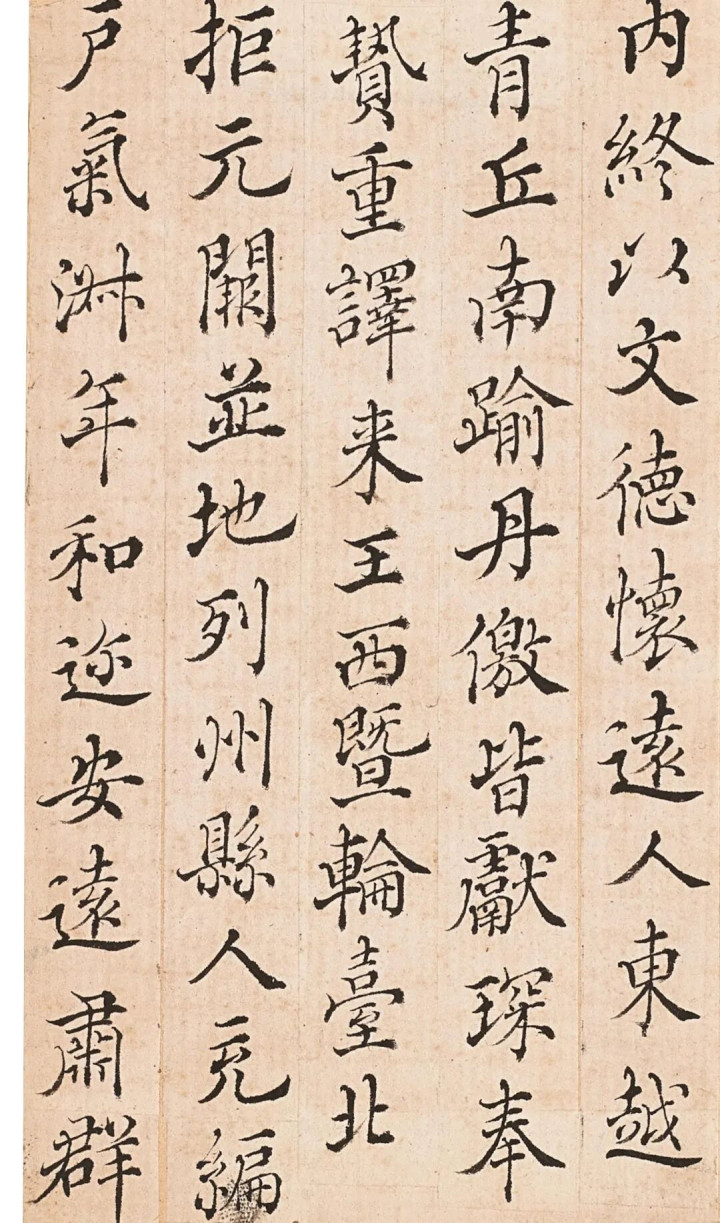 内終以文德懷遠人東越
青丘南踰丹儌皆獻琛奉
贄重譯来王西暨輪臺北
拒元闕並地列州縣人充編
戶氣淋年和迩安遠肅群